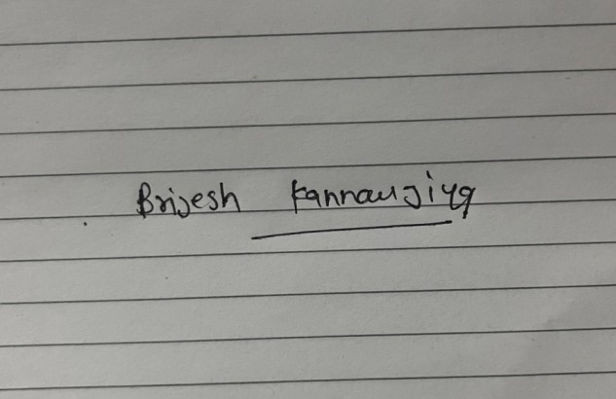 Brijesh Kannaujiya